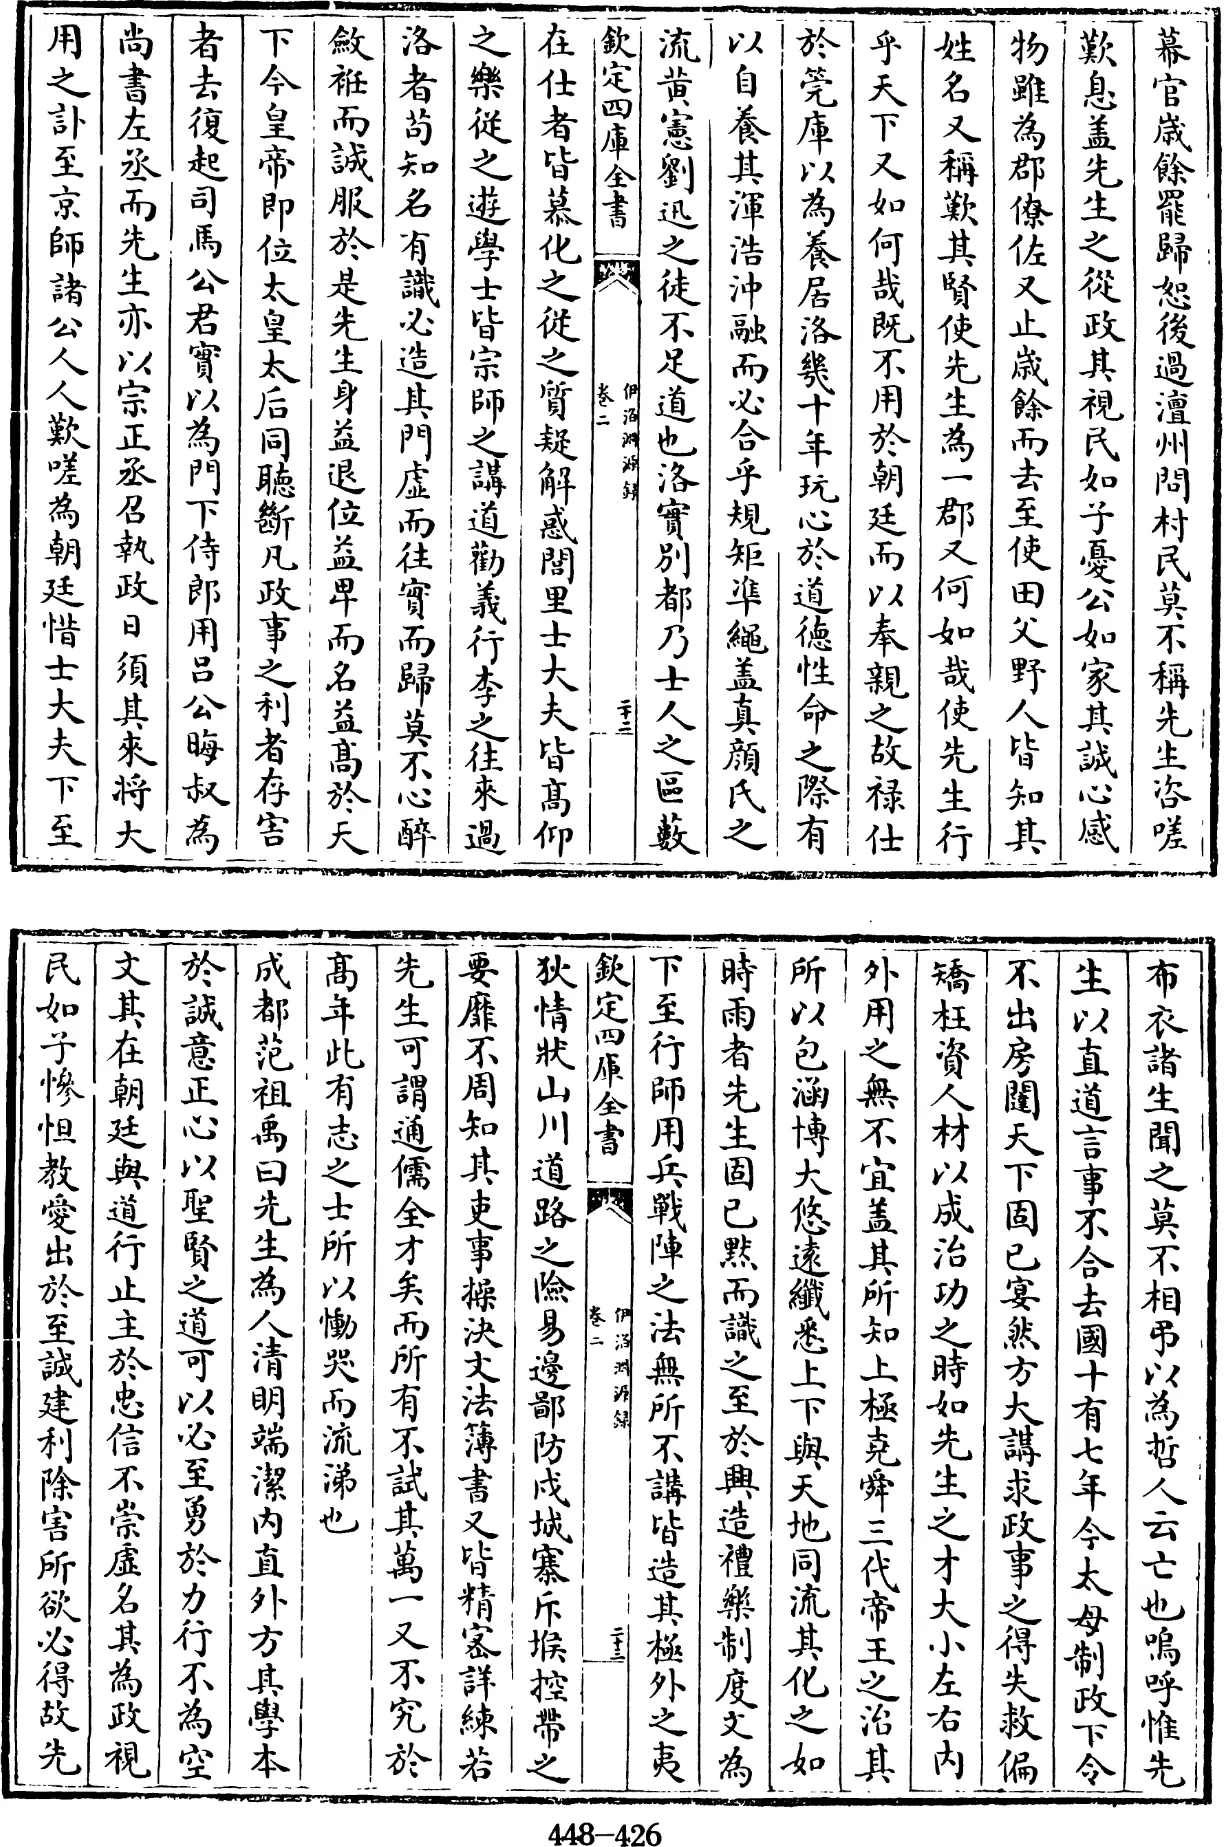 幕官歳餘罷歸恕後過澶州問村民莫不稱先生咨嗟
歎息蓋先生之從政其視民如子憂公如家其誠心感
物雖為郡僚佐又止歳餘而去至使田父野人皆知其
姓名又稱歎其賢使先生為一郡又何如哉使先生行
乎天下又如何哉既不用於朝廷而以奉親之故禄仕
於筦庫以為養居洛幾十年玩心於道德性命之際有
以自養其渾浩沖融而必合乎規矩準繩蓋真顔氏之
流黄憲劉迅之徒不足道也洛實别都乃士人之區藪
欽定四庫全書
伊洛淵源録
卷二
二十二
在仕者皆慕化之從之質疑解惑閭里士大夫皆髙仰
之樂從之遊學士皆宗師之講道勸義行李之往來過
洛者茍知名有識必造其門虚而往實而歸莫不心醉
斂衽而誠服於是先生身益退位益卑而名益髙於天
下今皇帝即位太皇太后同聽斷凡政事之利者存害
者去復起司馬公君實以為門下侍郎用呂公晦叔為
尚書左丞而先生亦以宗正丞召執政日須其來將大
用之訃至京師諸公人人歎嗟為朝廷惜士大夫下至
布衣諸生聞之莫不相弔以為哲人云亡也嗚呼惟先
生以直道言事不合去國十有七年今太母制政下令
不出房闥天下固已宴然方大講求政事之得失救偏
矯枉資人材以成治功之時如先生之才大小左右内
外用之無不宜蓋其所知上極堯舜三代帝王之治其
所以包涵博大悠遠纎悉上下與天地同流其化之如
時雨者先生固已黙而識之至於興造禮樂制度文為
下至行師用兵戰陣之法無所不講皆造其極外之夷
欽定四庫全書
伊洛淵源録
卷二
二十三
狄情狀山川道路之險易邊鄙防戍城寨斥堠控帶之
要靡不周知其吏事操決文法簿書又皆精宻詳練若
先生可謂通儒全才矣而所有不試其萬一又不究於
髙年此有志之士所以慟哭而流涕也
成都范祖禹曰先生為人清明端潔内直外方其學本
於誠意正心以聖賢之道可以必至勇於力行不為空
文其在朝廷與道行止主於忠信不崇虚名其為政視
民如子慘怛教愛出於至誠建利除害所欲必得故先
448-426